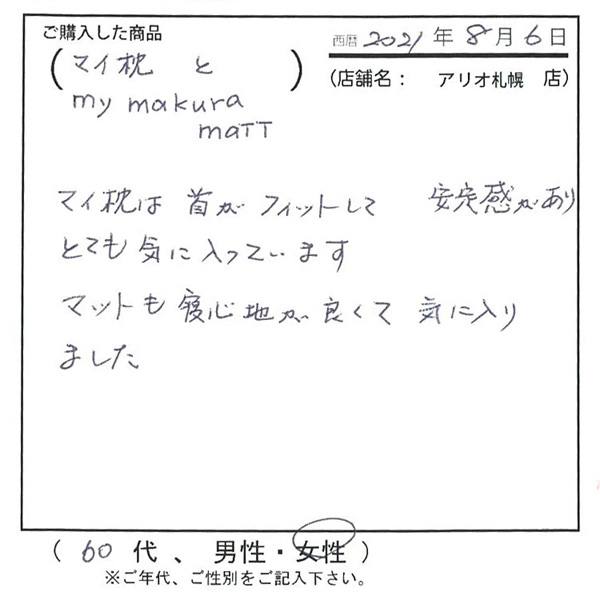 ご購入した商品
西暦 2021 年 8 月 6 日
(マイ枕 と
my makura
maTT)
(店舗名： アリオ札幌 店)
マイ枕は 首が フィットして 安定感があり
とても 気に入っています
マットも 寝心地が 良くて 気に入り
ました
( 60 代 、 男性・女性 )
※ご年代、ご性別をご記入下さい。